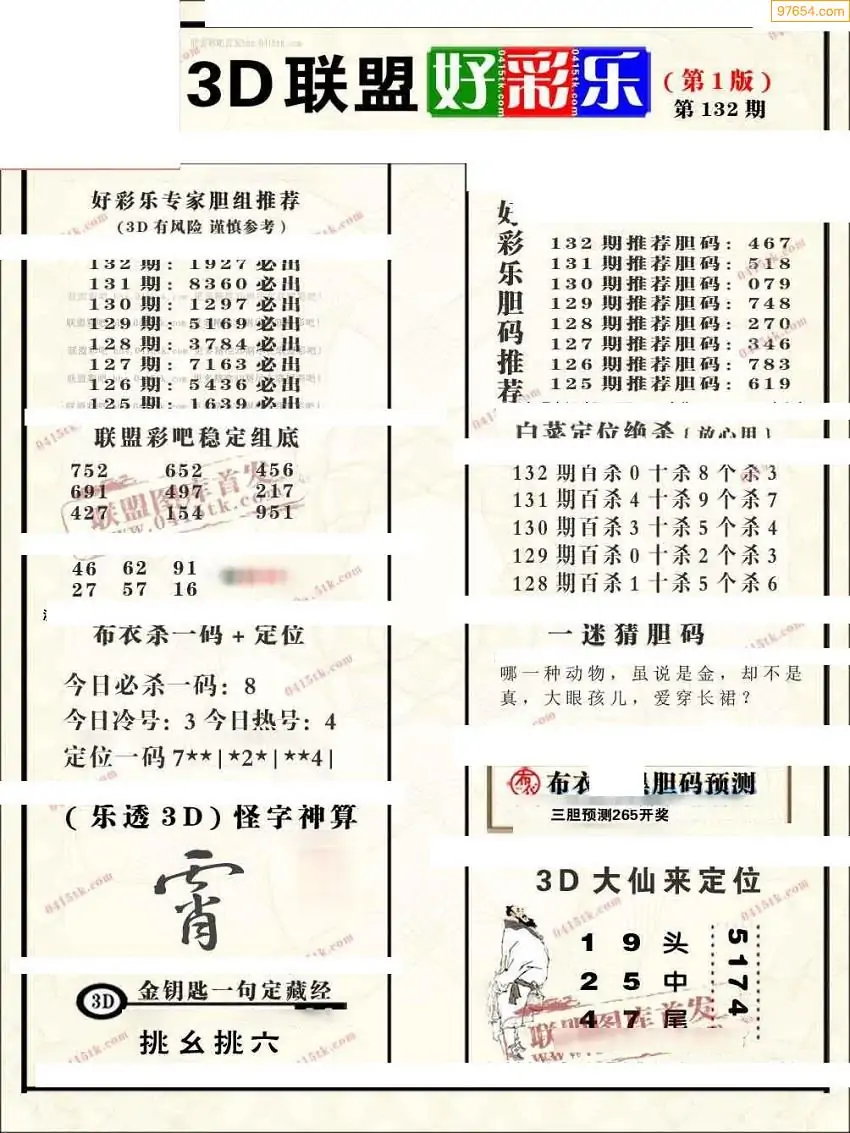 97654.com
3D联盟好彩乐
(第1版)
第132期
好彩乐专家胆组推荐
(3D有风险 谨慎参考)
132期: 1927必出
131期: 8360必出
130期: 1297必出
129期: 5169必出
128期: 3784必出
127期: 7163必出
126期: 5436必出
125期: 1639必出
联盟彩吧稳定组底
752 652 456
691 497 217
427 154 951
联盟图库首发
46 62 91
27 57 16
布衣杀一码+定位
今日必杀一码: 8
今日冷号: 3 今日热号: 4
定位一码7**|*2*|**4|
(乐透3D)怪字神算
霄
3D 金钥匙一句定藏经
挑幺挑六
好彩乐胆码推荐
132期推荐胆码: 467
131期推荐胆码: 518
130期推荐胆码: 079
129期推荐胆码: 748
128期推荐胆码: 270
127期推荐胆码: 346
126期推荐胆码: 783
125期推荐胆码: 619
白菜定位绝杀(放心用)
132期百杀0十杀8个杀3
131期百杀4十杀9个杀7
130期百杀3十杀5个杀4
129期百杀0十杀2个杀3
128期百杀1十杀5个杀6
一迷猜胆码
哪一种动物，虽说是金，却不是
真，大眼孩儿，爱穿长裙？
布衣
胆码预测
三胆预测265开奖
3D大仙来定位
1 9 头
2 5 中
4 7 尾
5174
联盟图库首发
0415tk.com